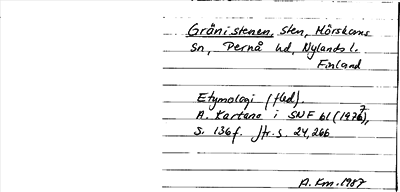 Gränistenen, sten, Mörskoms
sn, Pernå hd, Nylands l.
Finland
Etymologi (fled).
A. Kartano i SNF 61 (1976),
s. 136 f. Jfr s. 24, 266
A. Km. 1987